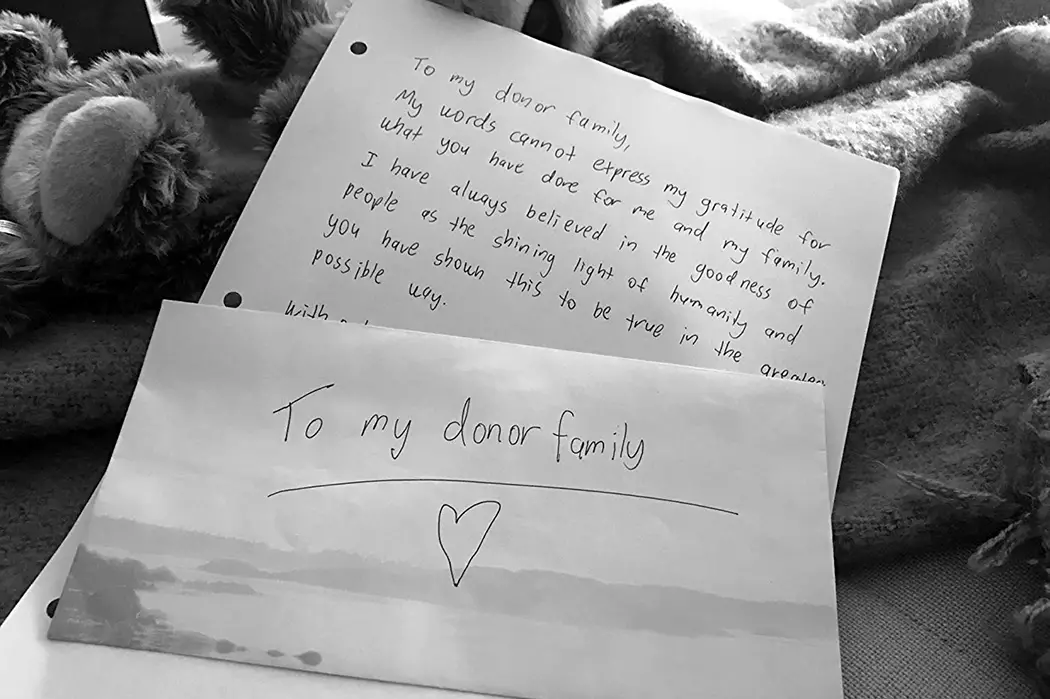 To my donor family,
My words cannot express my gratitude for
what you have done for me and my family.
I have always believed in the goodness of
people as the shining light of humanity and
you have shown this to be true in the
possible way.
With
To my donor family